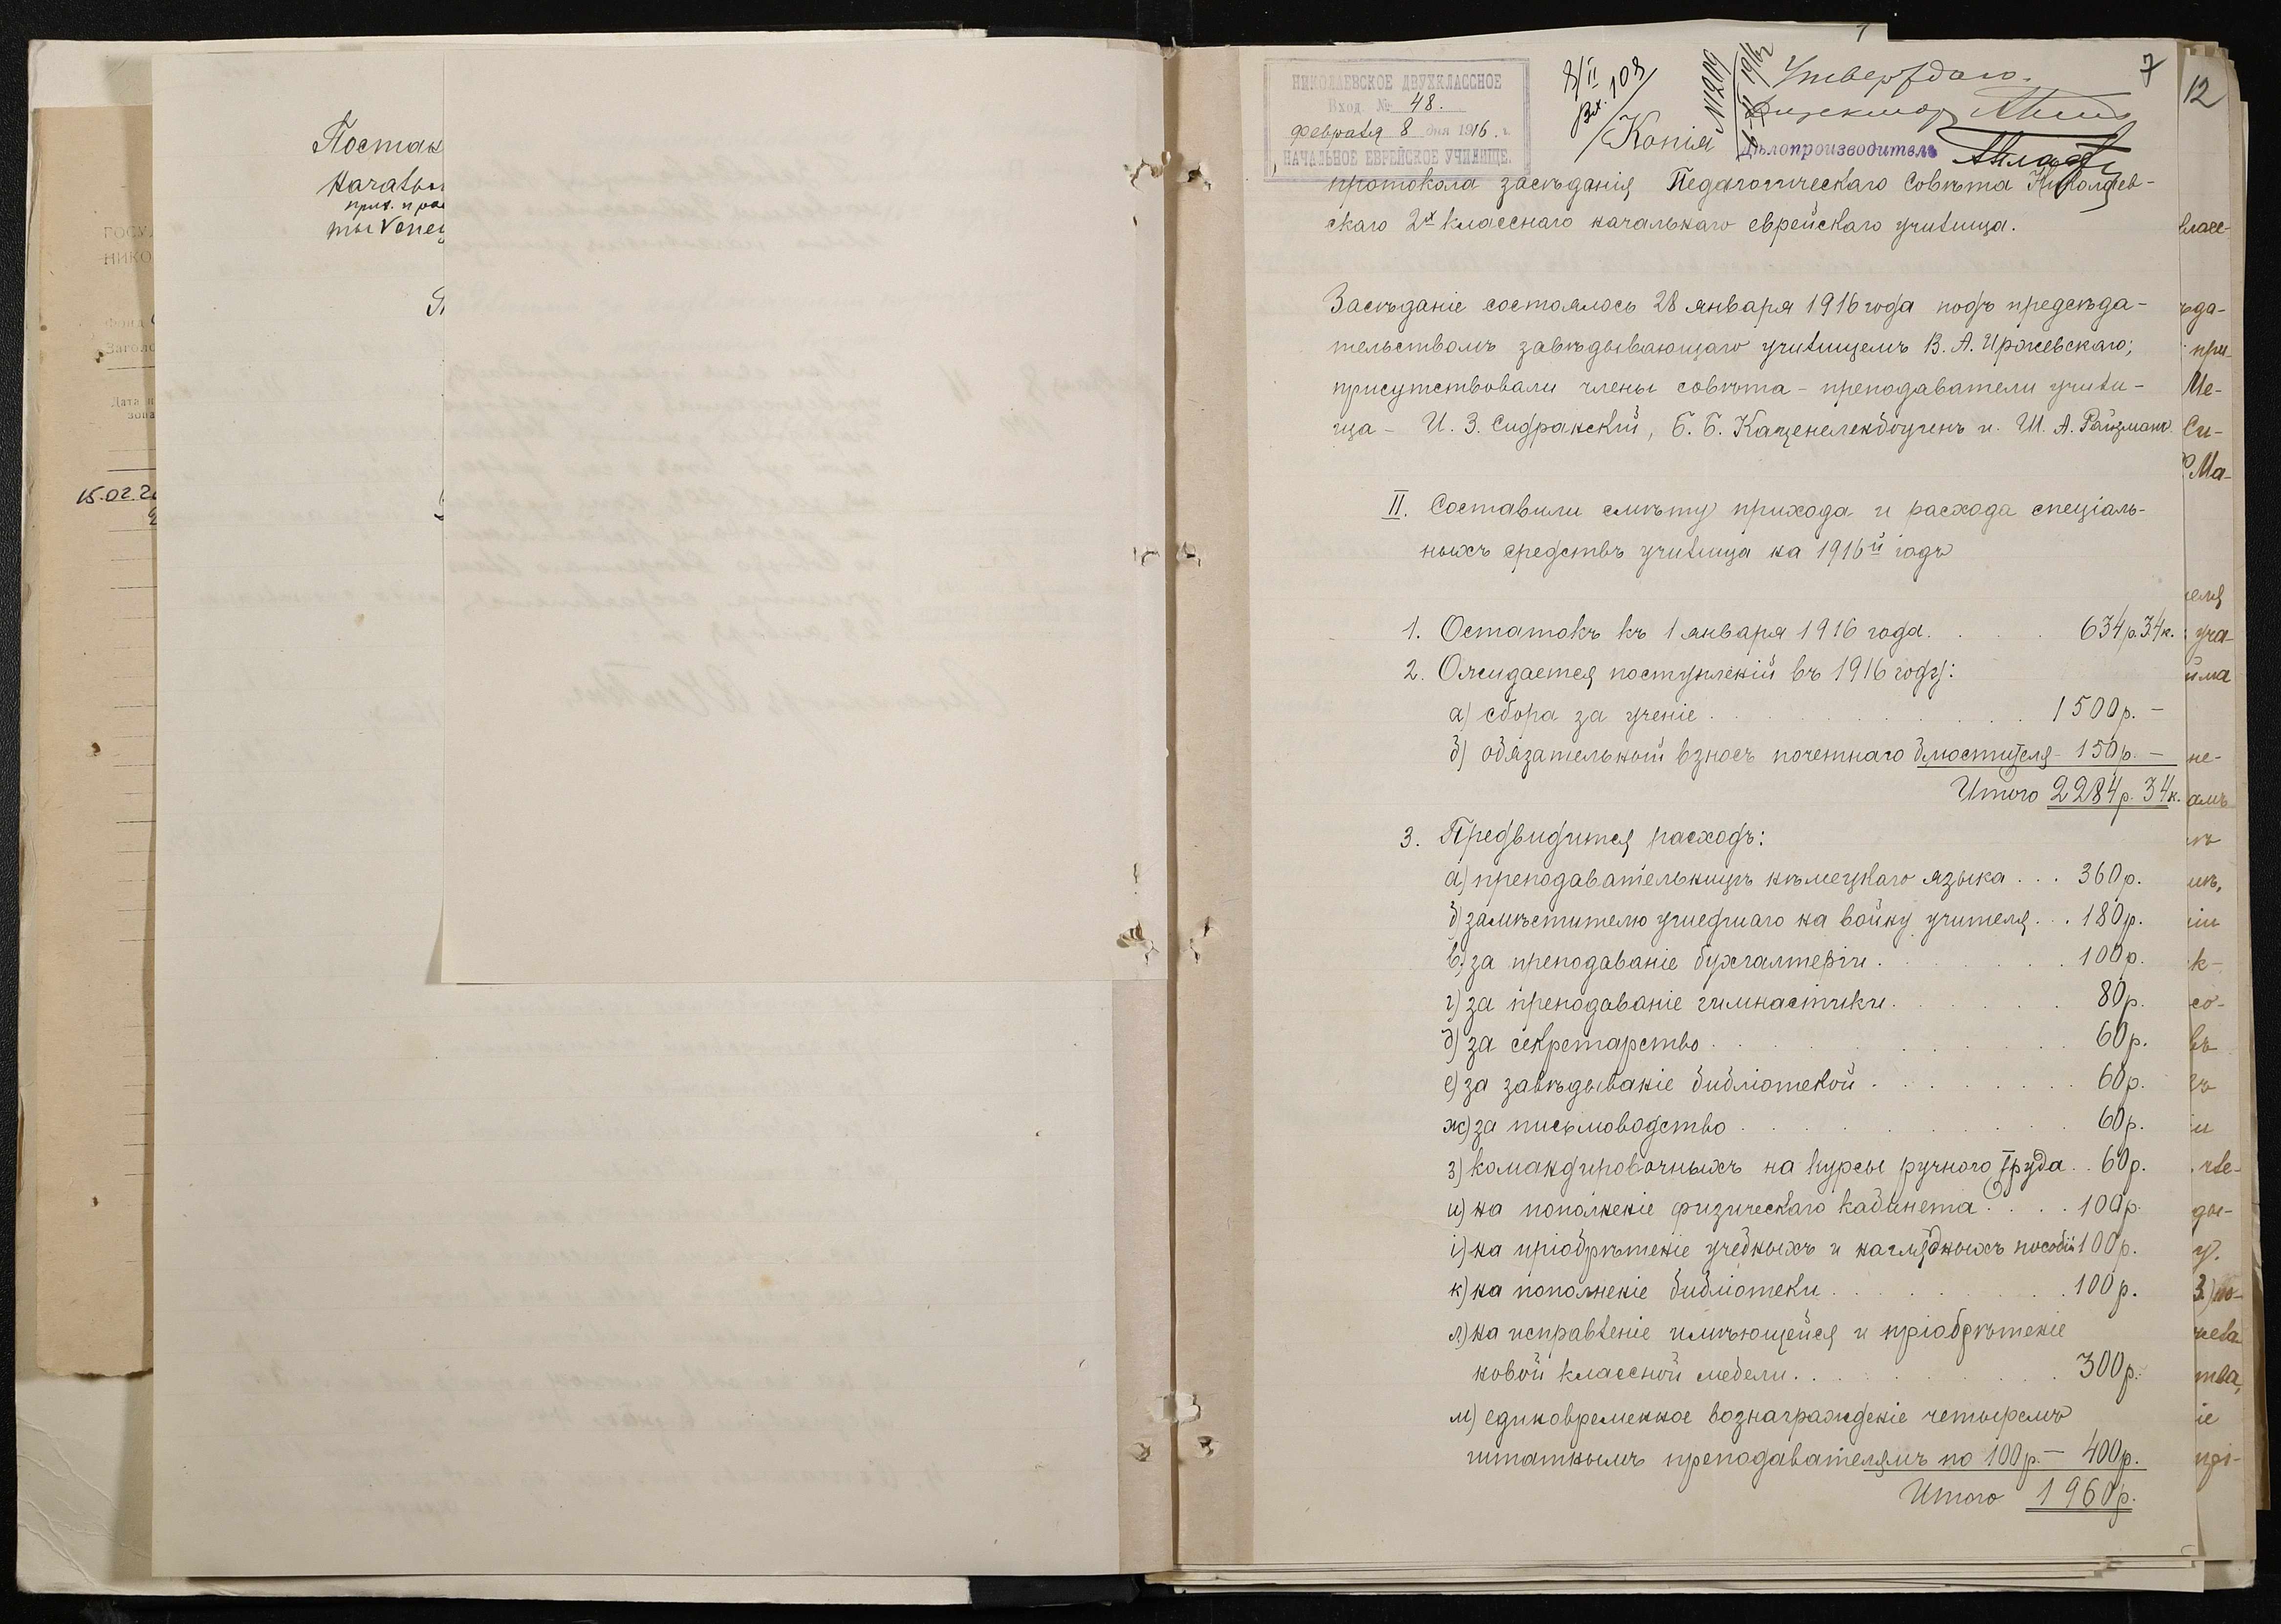 Постан
начальн
ты
ГОСУ
НИКО
Фонд
Заголо
Дата
15.02.2
НИКОЛАЕВСКОЕ ДВУХКЛАССНОЕ
Вход. № 48.
февраля 8 дня 1916 г.
НАЧАЛЬНОЕ ЕВРЕЙСКОЕ УЧИЛИЩЕ.
8/II
Вх. 108
№ 209
1916
Утверждаю.
Директор
7
12
Копія
Дѣлопроизводитель
протокола засѣданія Педагогическаго Совѣта Николаев-
скаго 2х класснаго начальнаго еврейскаго училища.
Засѣданіе состоялось 28 января 1916 года подъ предсѣда-
тельствомъ завѣдывающаго училищемъ В. А. Иржевскаго;
присутствовали члены совѣта - преподаватели учили-
ща - И. З. Сидранскій, Б. Б. Каценеленбогенъ и Ш. А. Райзманъ.
II. Составили смѣту прихода и расхода спеціаль-
ныхъ средствъ училища на 1916й годъ
1. Остатокъ къ 1 января 1916 года. . . . . 634р.34к.
2. Ожидается поступленій въ 1916 году:
а) сбора за ученіе . . . . . . . . . . . 1500р. -
б) обязательный взносъ почетнаго блюстителя - 150р. -
Итого 2284р. 34к.
3. Предвидится расходъ:
а) преподавательницѣ нѣмецкаго языка . . . 360р.
б) замѣстителю ушедшаго на войну учителя . . . 180р.
в) за преподаваніе бухгалтеріи . . . . . . 100р.
г) за преподаваніе гимнастики . . . . . . 80р.
д) за секретарство . . . . . . . . . . 60р.
е) за завѣдываніе библіотекой . . . . . . . 60р.
ж) за письмоводство . . . . . . . . . . 60р.
з) командировочныхъ на курсы ручного труда . . 60р.
и) на пополненіе физическаго кабинета . . . . 100р.
і) на пріобрѣтеніе учебныхъ и наглядныхъ пособій 100р.
к) на пополненіе библіотеки . . . . . . . . 100р.
л) на исправленіе имѣющейся и пріобрѣтеніе
новой классной мебели . . . . . . . . . 300р.
м) единовременное вознагражденіе четыремъ
штатнымъ преподавателямъ по 100р. - 400р.
Итого 1960р.